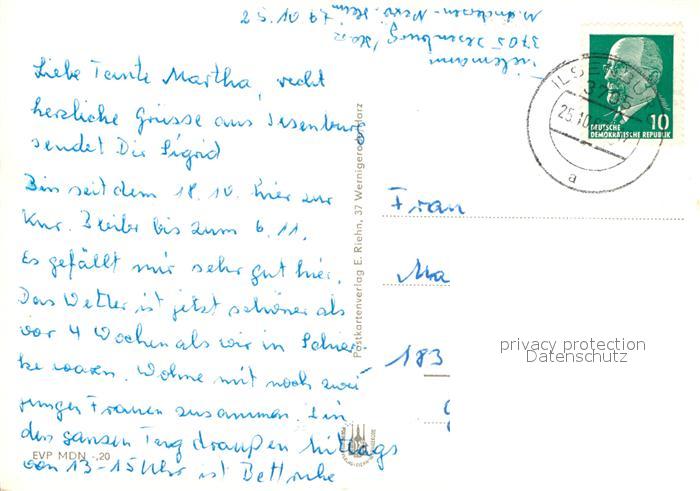 Tielemann
3705 Ilsenburg/Harz
M. Andersen-Nexö-Heim
Liebe Tante Martha, recht
herzliche Grüsse aus Ilsenburg
sendet Dir Sigrid
Bin seit dem 18.10. hier zur
Kur. Bleibe bis zum 6.11.
Es gefällt mir sehr gut hier.
Das Wetter ist jetzt schöner als
vor 4 Wochen als wir in Schier-
ke waren. Wohne mit noch zwei
jungen Frauen zusammen. Bin
den ganzen Tag draußen Mittags
von 13-15 Uhr ist Bettruhe
EVP MDN -,20
Postkartenverlag E. Riehn, 37 Wernigerode/Harz
ILSENBURG
3705
25.10.
a
10
DEUTSCHE
DEMOKRATISCHE REPUBLIK
Frau
Ma
183
privacy protection
Datenschutz